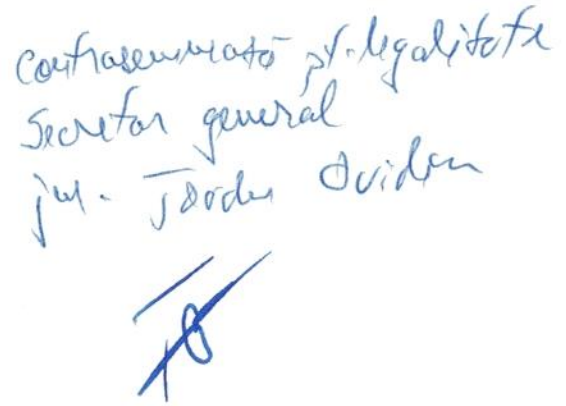 Contrasemnează pt. legalitate
Secretar general
jur. Ovidiu